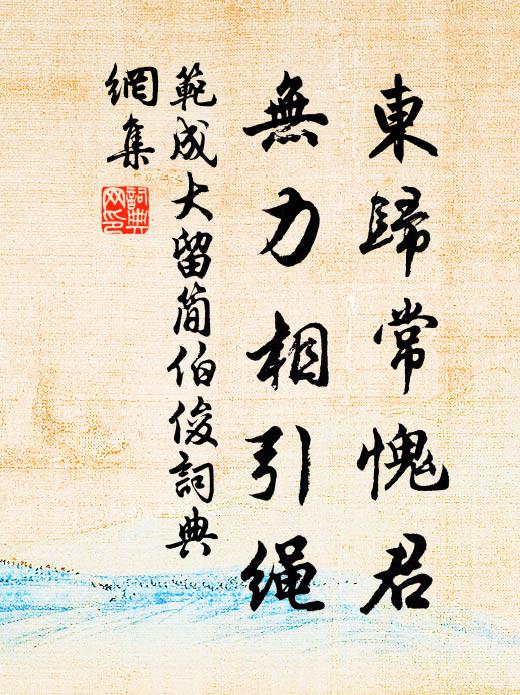 東歸常愧君
無力相引繩
範成大留简伯俊詞典
網集
詞典
网印